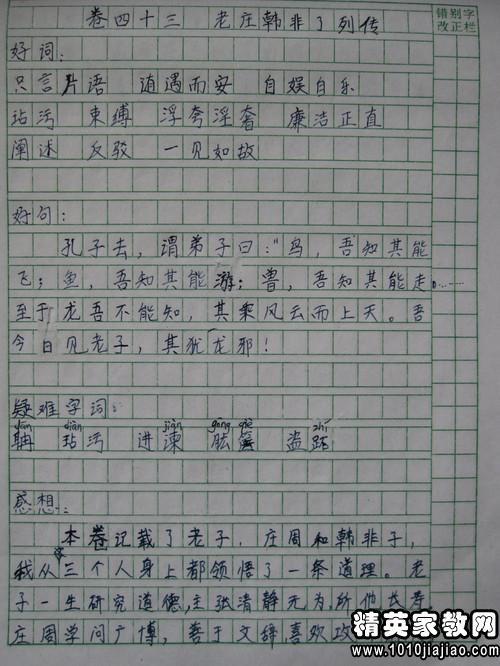 卷四十三 老庄韩非了列传
错别字
改正栏
好词：
只言片语 逍遇而安 自娱自乐
玷污 束缚 浮夸淫奢 廉洁正直
阐述 反驳 一见如故
好句：
孔子去，谓弟子曰："鸟，吾知其能
飞；鱼，吾知其能游；兽，吾知其能走。……
至于龙吾不能知，其乘风云而上天。吾
今日见老子，其犹龙邪！
疑难字词：
diàn jiàn gōng qiè zhí
玷污 进谏 肱箧 盗跖
感想：
本卷记载了老子，庄周和韩非子，
我从这三个人身上都领悟了一条道理。老
子一生研究道德，主张清静无为，所他长寿
庄周学问广博，善于文辞喜欢攻
精英家教网
www.1010jiajiao.com